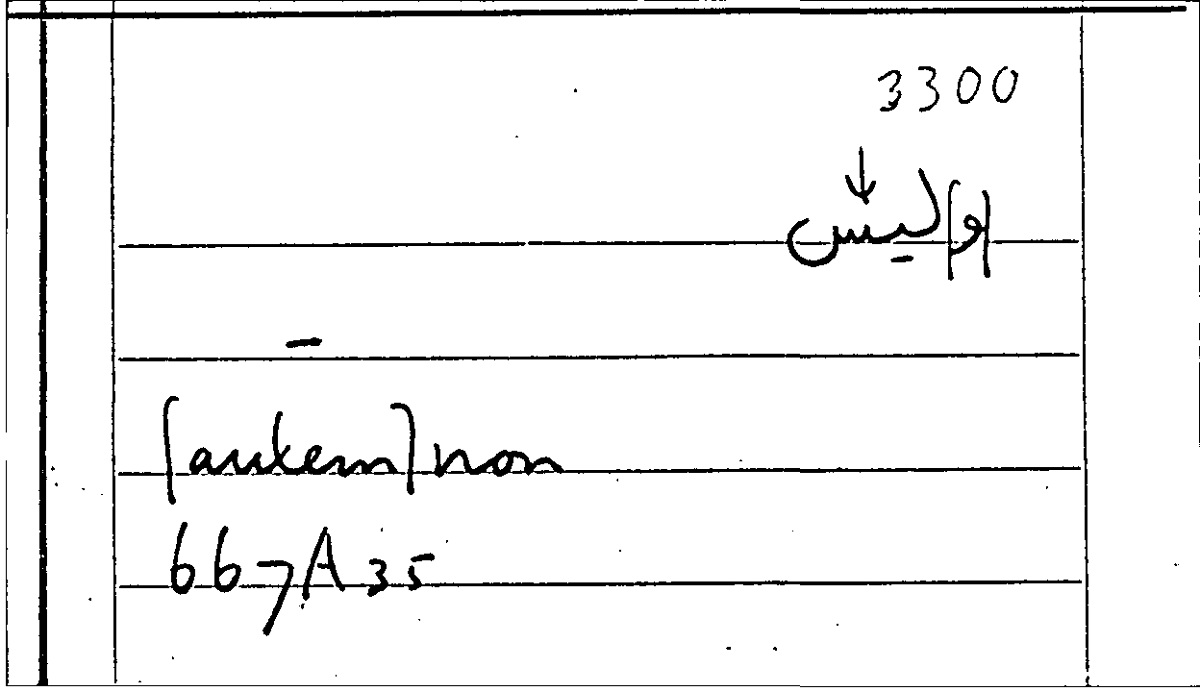 3300
↓
ا[و]ليس
[autem] non
667A35